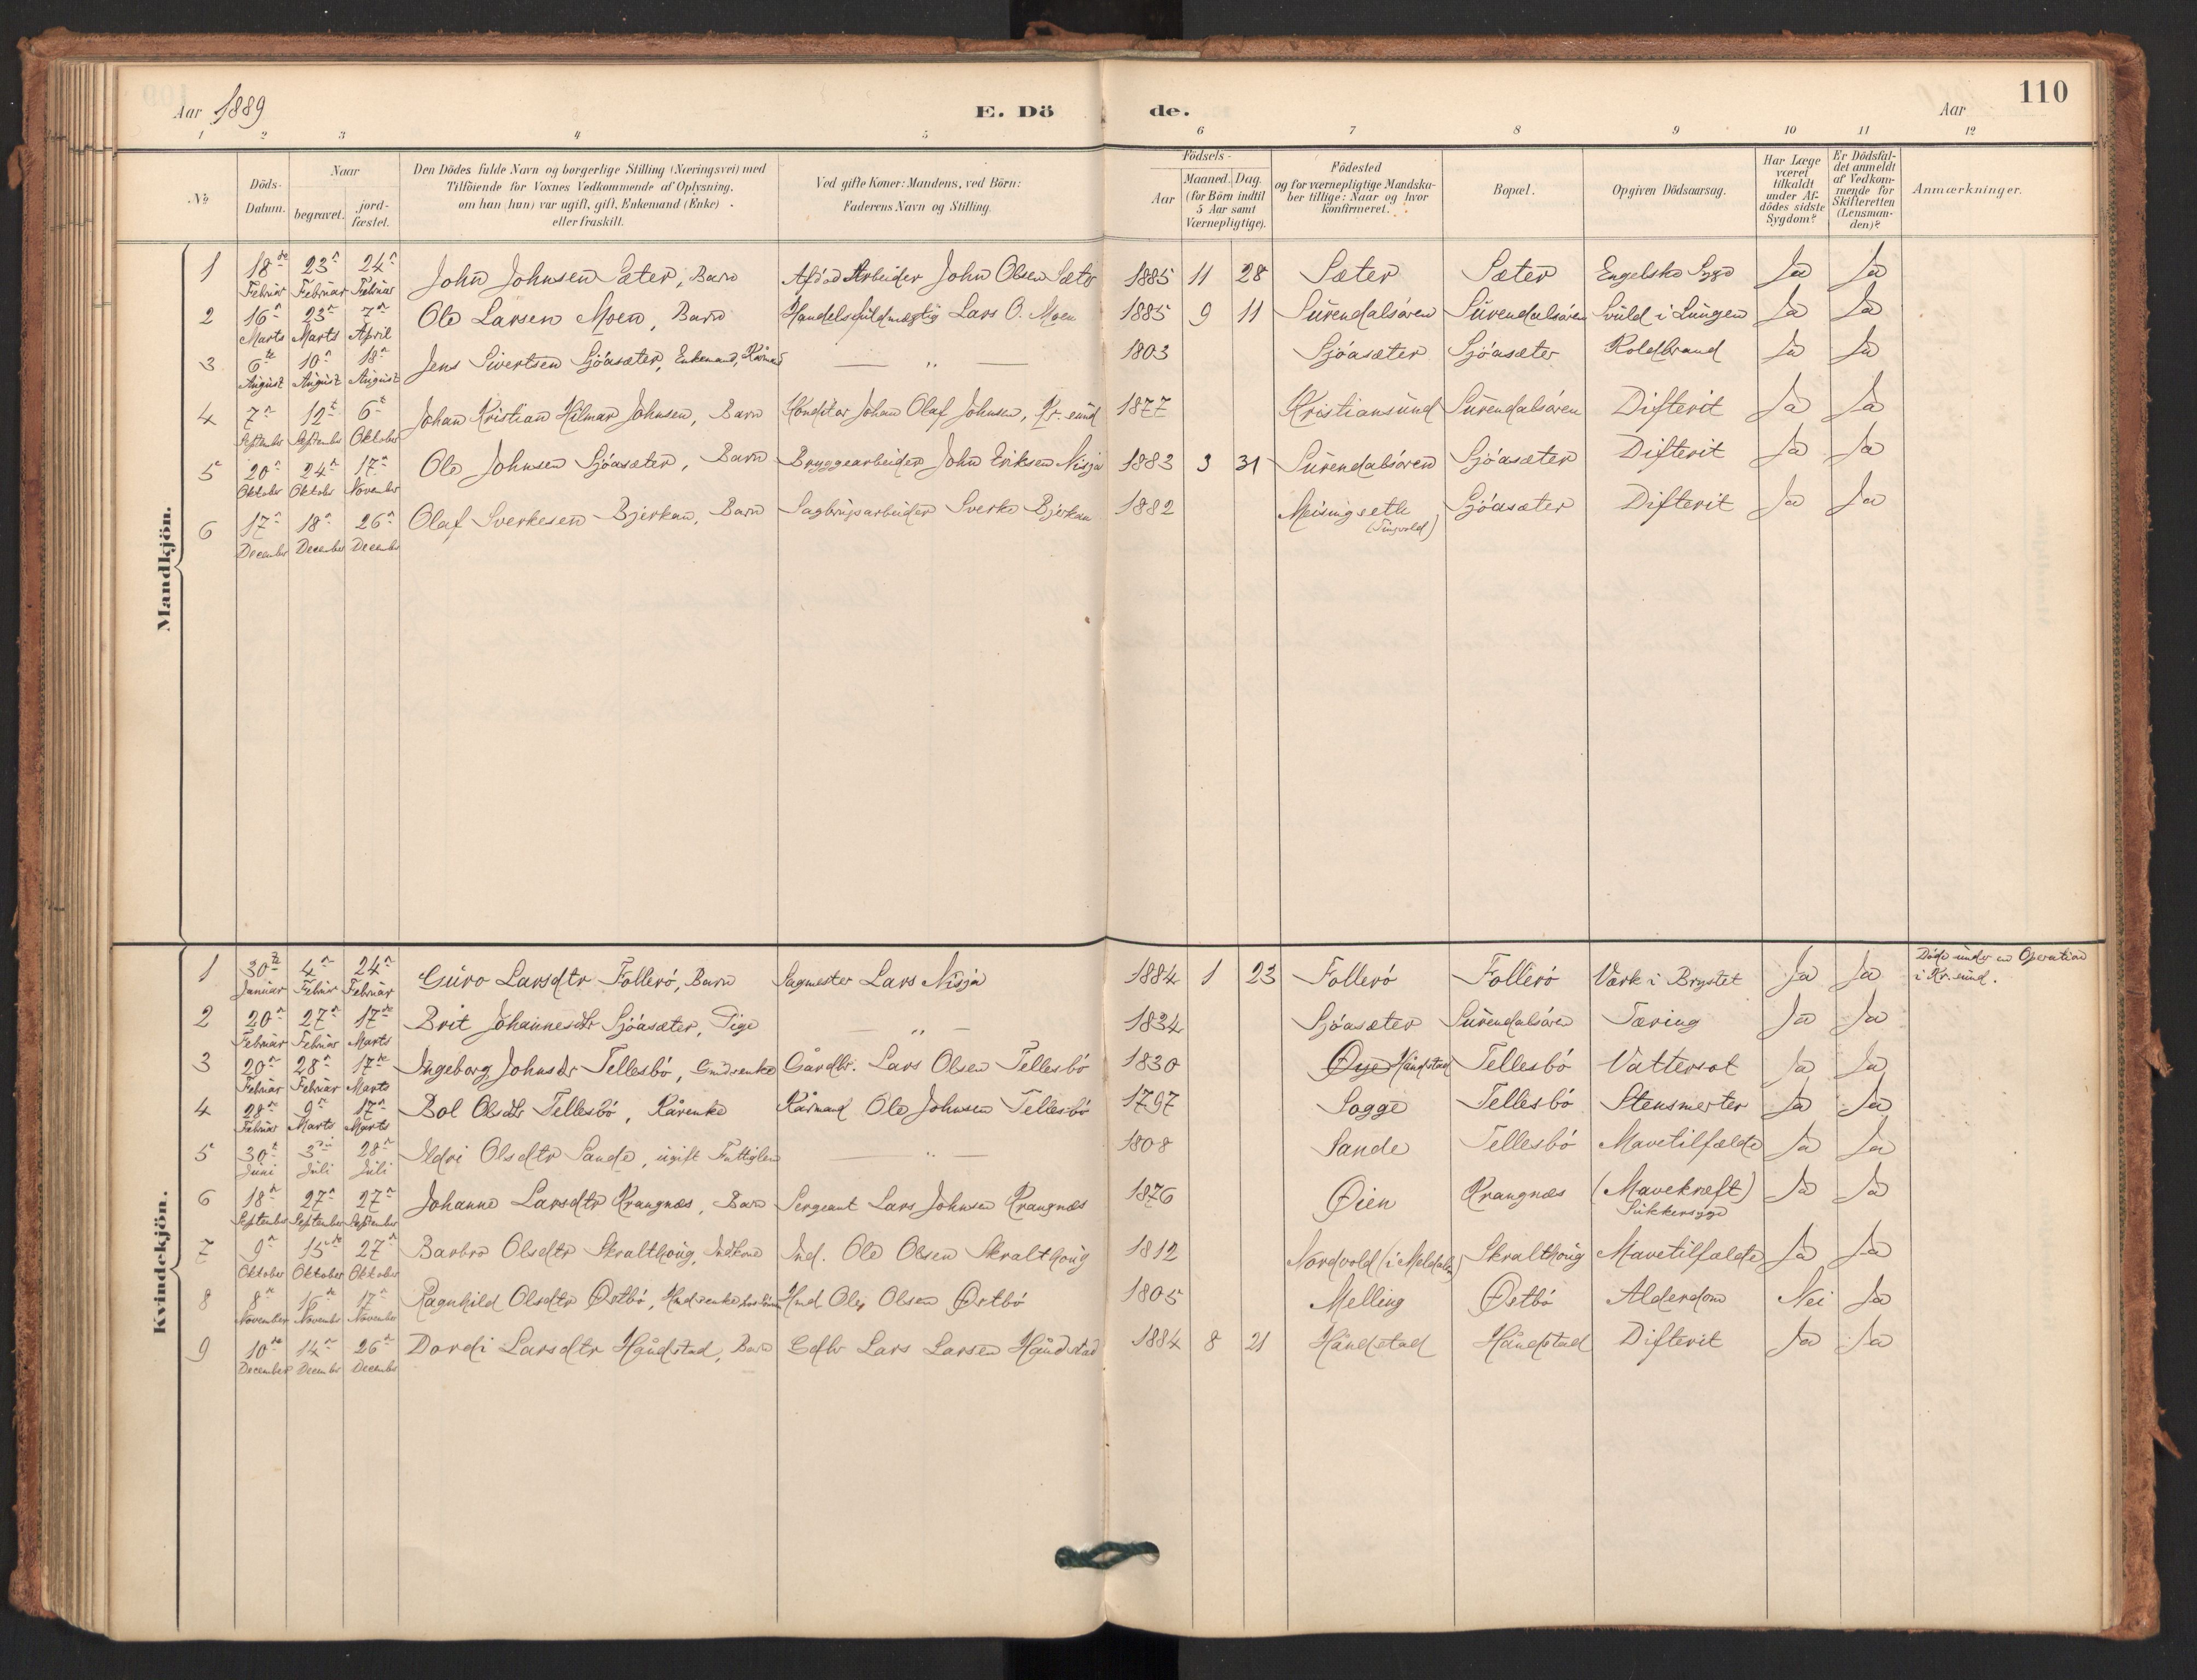 Aar 1889 E. Dö de. Aar 110
1 2 3 4 5 6 7 8 9 10 11 12
No
Döds-Datum.
Naar begravet. jord-fæstet.
Den Dödes fulde Navn og borgerlige Stilling (Næringsvei) med
Tilföiende for Voxnes Vedkommende af Oplysning,
om han (hun) var ugift, gift, Enkemand (Enke)
eller fraskilt.
Ved gifte Koner: Mandens, ved Börn:
Faderens Navn og Stilling.
Födsels-
Aar Maaned. Dag.
(for Börn indtil
5 Aar samt
Værnepligtige).
Födested
og for værnepligtige Mandska-
ber tillige: Naar og hvor
konfirmeret.
Bopæl.
Opgiven Dödsaarsag.
Har Læge
været
tilkaldt
under Af-
dödes sidste
Sygdom?
Er Dödsfal-
det anmeldt
af Vedkom-
mende for
Skifteretten
(Lensman-
den)?
Anmærkninger.
Mandkjön.
1 18de Februar 23n Februar 24n Februar John Johnsen Sæter, Barn Afdöd Arbeider John Olsen Sæter 1885 11 28 Sæter Sæter Engelske Syge Ja Ja
2 16n Marts 23n Marts 7n April Ole Larsen Moen, Barn Handelsfuldmægtig Lars O. Moen 1885 9 11 Surendalsören Surendalsören Svuld i Lungen Ja Ja
3 6te August 10n August 18n August Jens Sivertsen Sjöasæter, Enkemand, Kårmand — „ — 1803 Sjöasæter Sjöasæter Koldbrand Ja Ja
4 7n September 12te September 6te Oktober Johan Kristian Hilmar Johnsen, Barn Konditor Johan Olaf Johnsen, Kr.sund 1877 Kristiansund Surendalsören Difterit Ja Ja
5 20n Oktober 24n Oktober 17n November Ole Johnsen Sjöasæter, Barn Bryggearbeider John Eriksen Nisja 1883 3 31 Surendalsören Sjöasæter Difterit Ja Ja
6 17n December 18n December 26n December Olaf Sverkesen Bjerkan, Barn Sagbrugsarbeider Sverke Bjerkan 1882 Meisingseth (Tingvold) Sjöasæter Difterit Ja Ja
Kvindekjön.
1 30te Januar 4n Februar 24n Februar Guro Larsdtr Follerö, Barn Sagmester Lars Nisja 1884 1 23 Follerö Follerö Værk i Brystet Ja Ja Döde under en Operation
i Kr.sund.
2 20n Februar 27n Februar 17de Marts Brit Johannesdtr Sjöasæter, Pige — „ — 1834 Sjöasæter Surendalsören Tæring Ja Ja
3 20n Februar 28n Februar 17de Marts Ingeborg Johnsdtr Tellesbö, Gmdsenke Gårdbr. Lars Olsen Tellesbö 1830 Øye Håndstad Tellesbö Vattersot Ja Ja
4 28n Februar 9n Marts 17n Marts Bol Olsdtr Tellesbö, Kårenke Kårmand Ole Johnsen Tellesbö 1797 Sogge Tellesbö Stensmerter Ja Ja
5 30te Juni 3die Juli 28n Juli Ildri Olsdtr Sande, ugift Fattiglem — „ — 1808 Sande Tellesbö Mavetilfælde Ja Ja
6 18n September 27n September 27n September Johanne Larsdtr Krangnæs, Barn Sergeant Lars Johnsen Krangnæs 1876 Øien Krangnæs (Mavekræft) Sukkersyge Ja Ja
7 9n Oktober 15de Oktober 27n Oktober Barbro Olsdtr Skralthoug, Indkone Ind. Ole Olsen Skralthoug 1812 Nordvold (i Meldalen) Skralthoug Mavetilfælde Ja Ja
8 8n November 16de November 17n November Ragnhild Olsdtr Østbö, Hmdsenke Hmd Ole Olsen Østbö 1805 Melling Østbö Alderdom Nei Ja
9 10de December 14n December 26n December Dordi Larsdtr Håndstad, Barn Gdbr Lars Larsen Håndstad 1884 8 21 Håndstad Håndstad Difterit Ja Ja